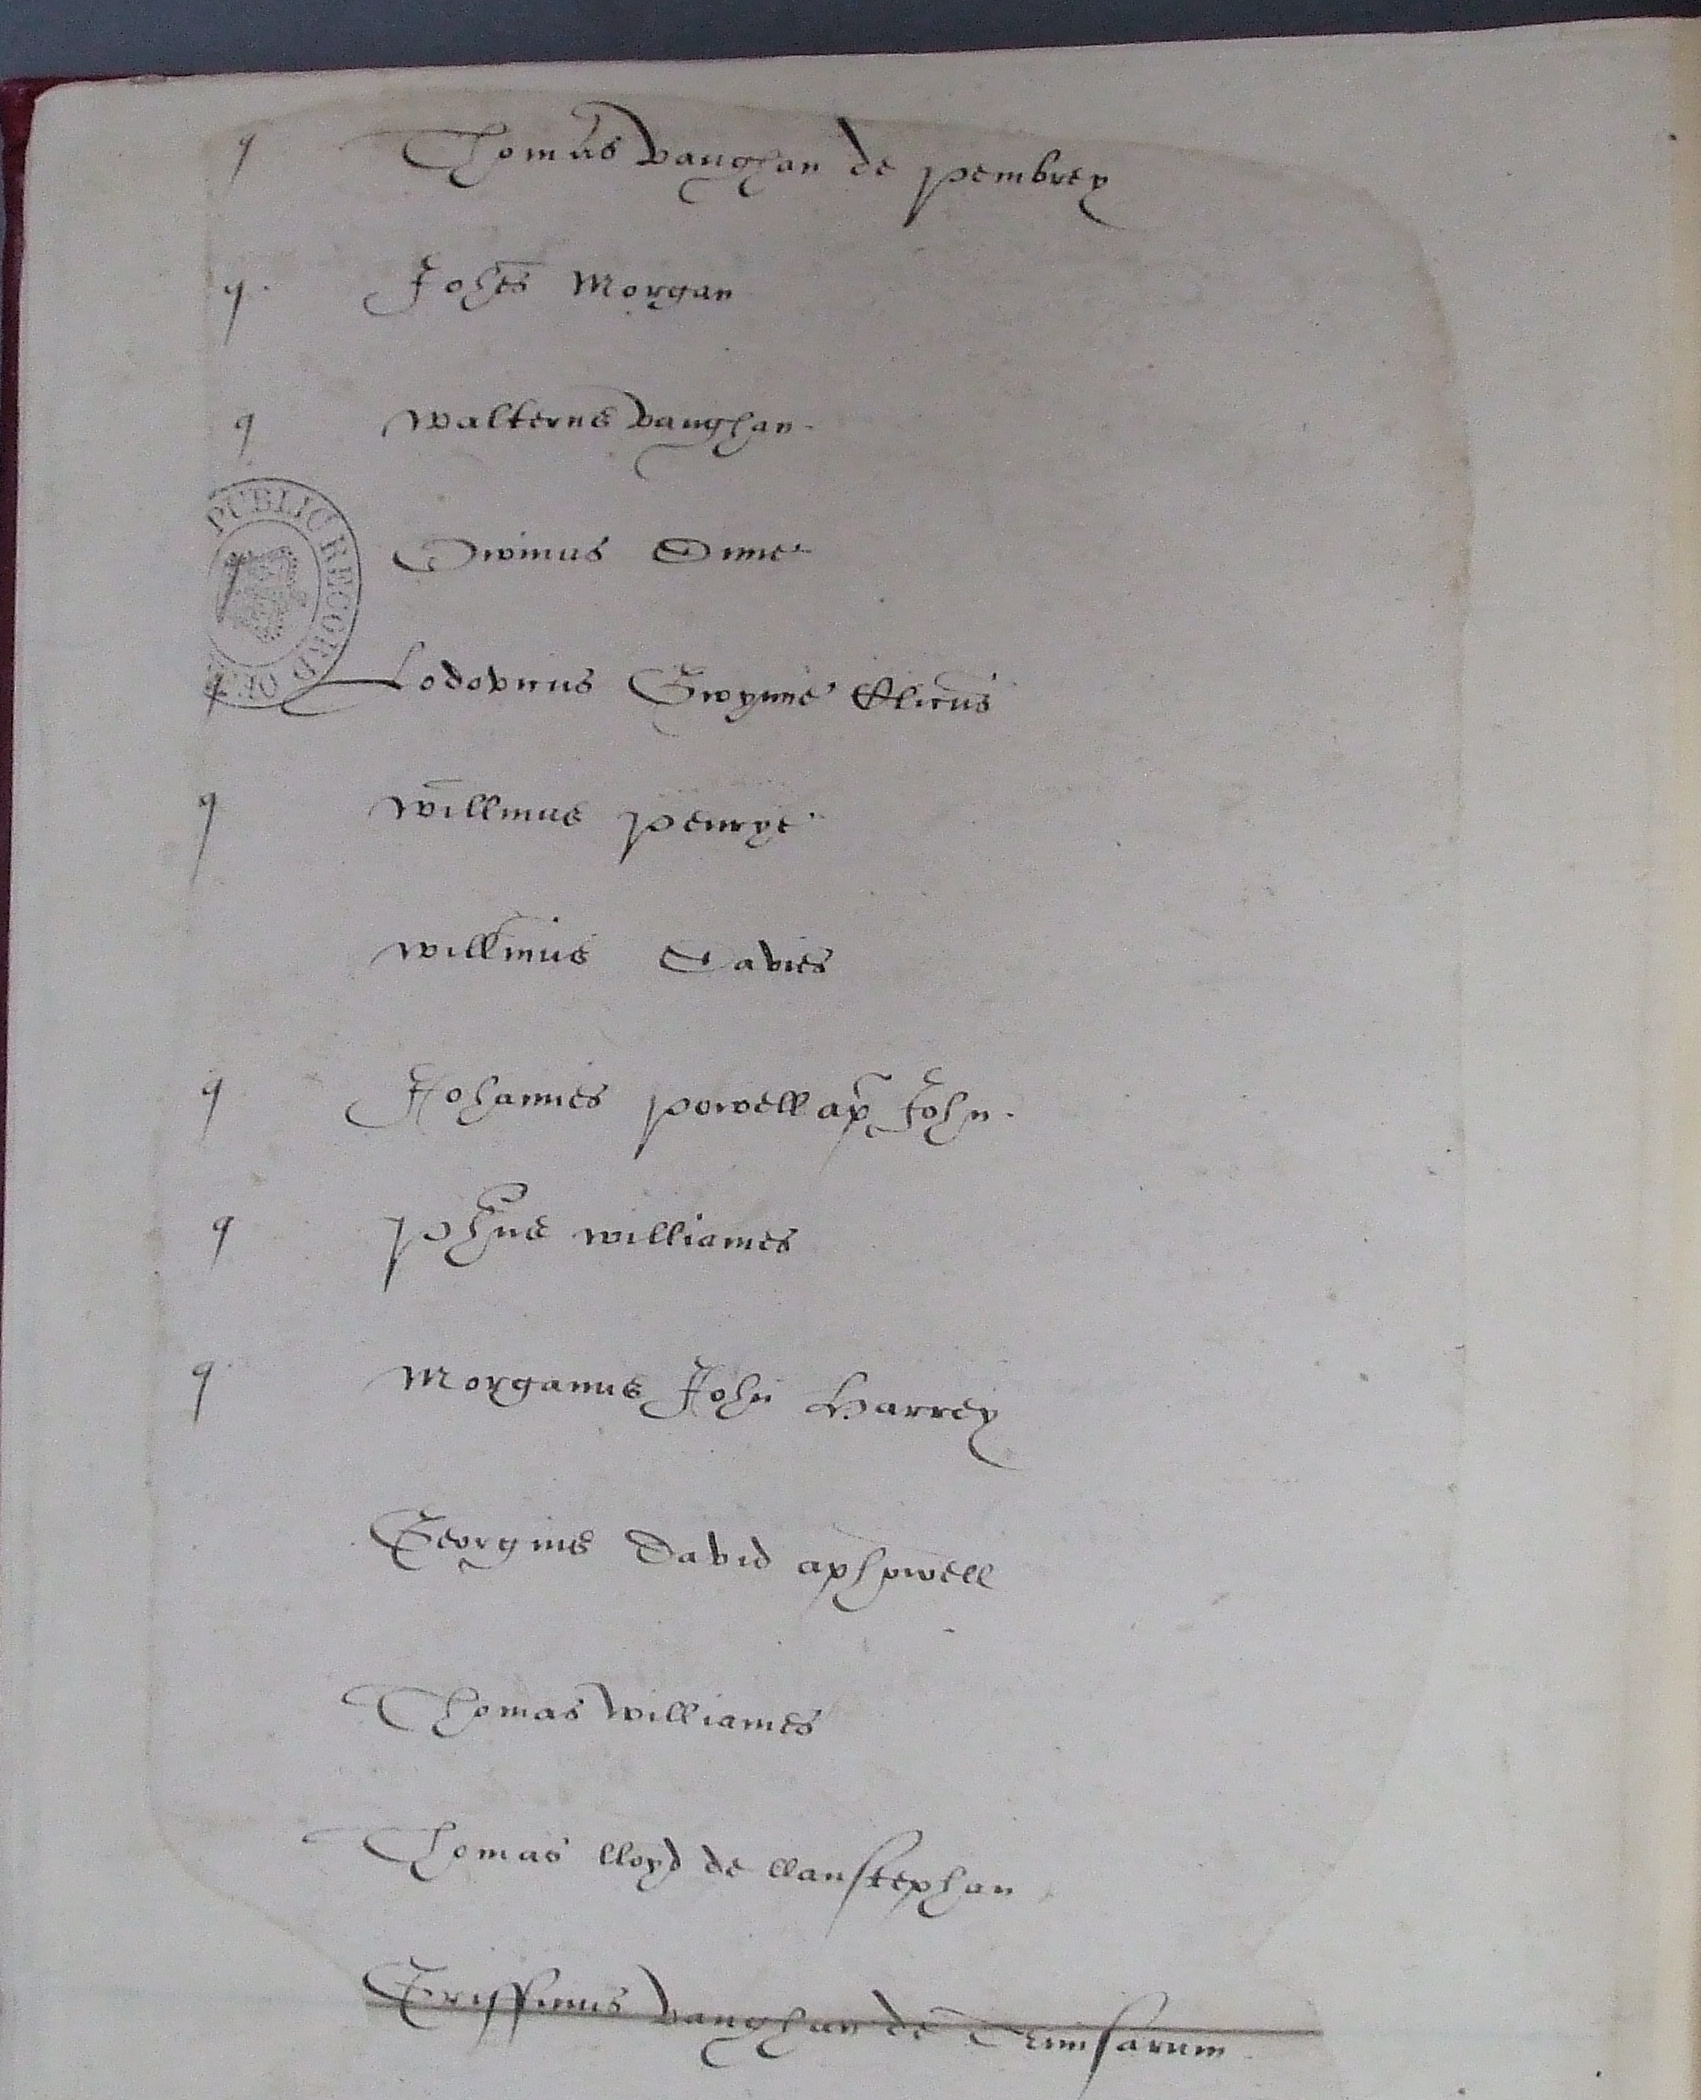 q Thomas vaughan de pembrey
q Johes Morgan
q Walterus vaughan
Owinus
PUBLIC RECORD OF
q Lodovicus Gwynne Clicus
q Willmus penrye
Willmus Davies
q Johannes powell ap John
q phus williames
q Morganus John Harrey
Georgius David aphowell
Thomas Williames
Thomas lloyd de llanstephan
Griffinus vaughan de Trimsarum